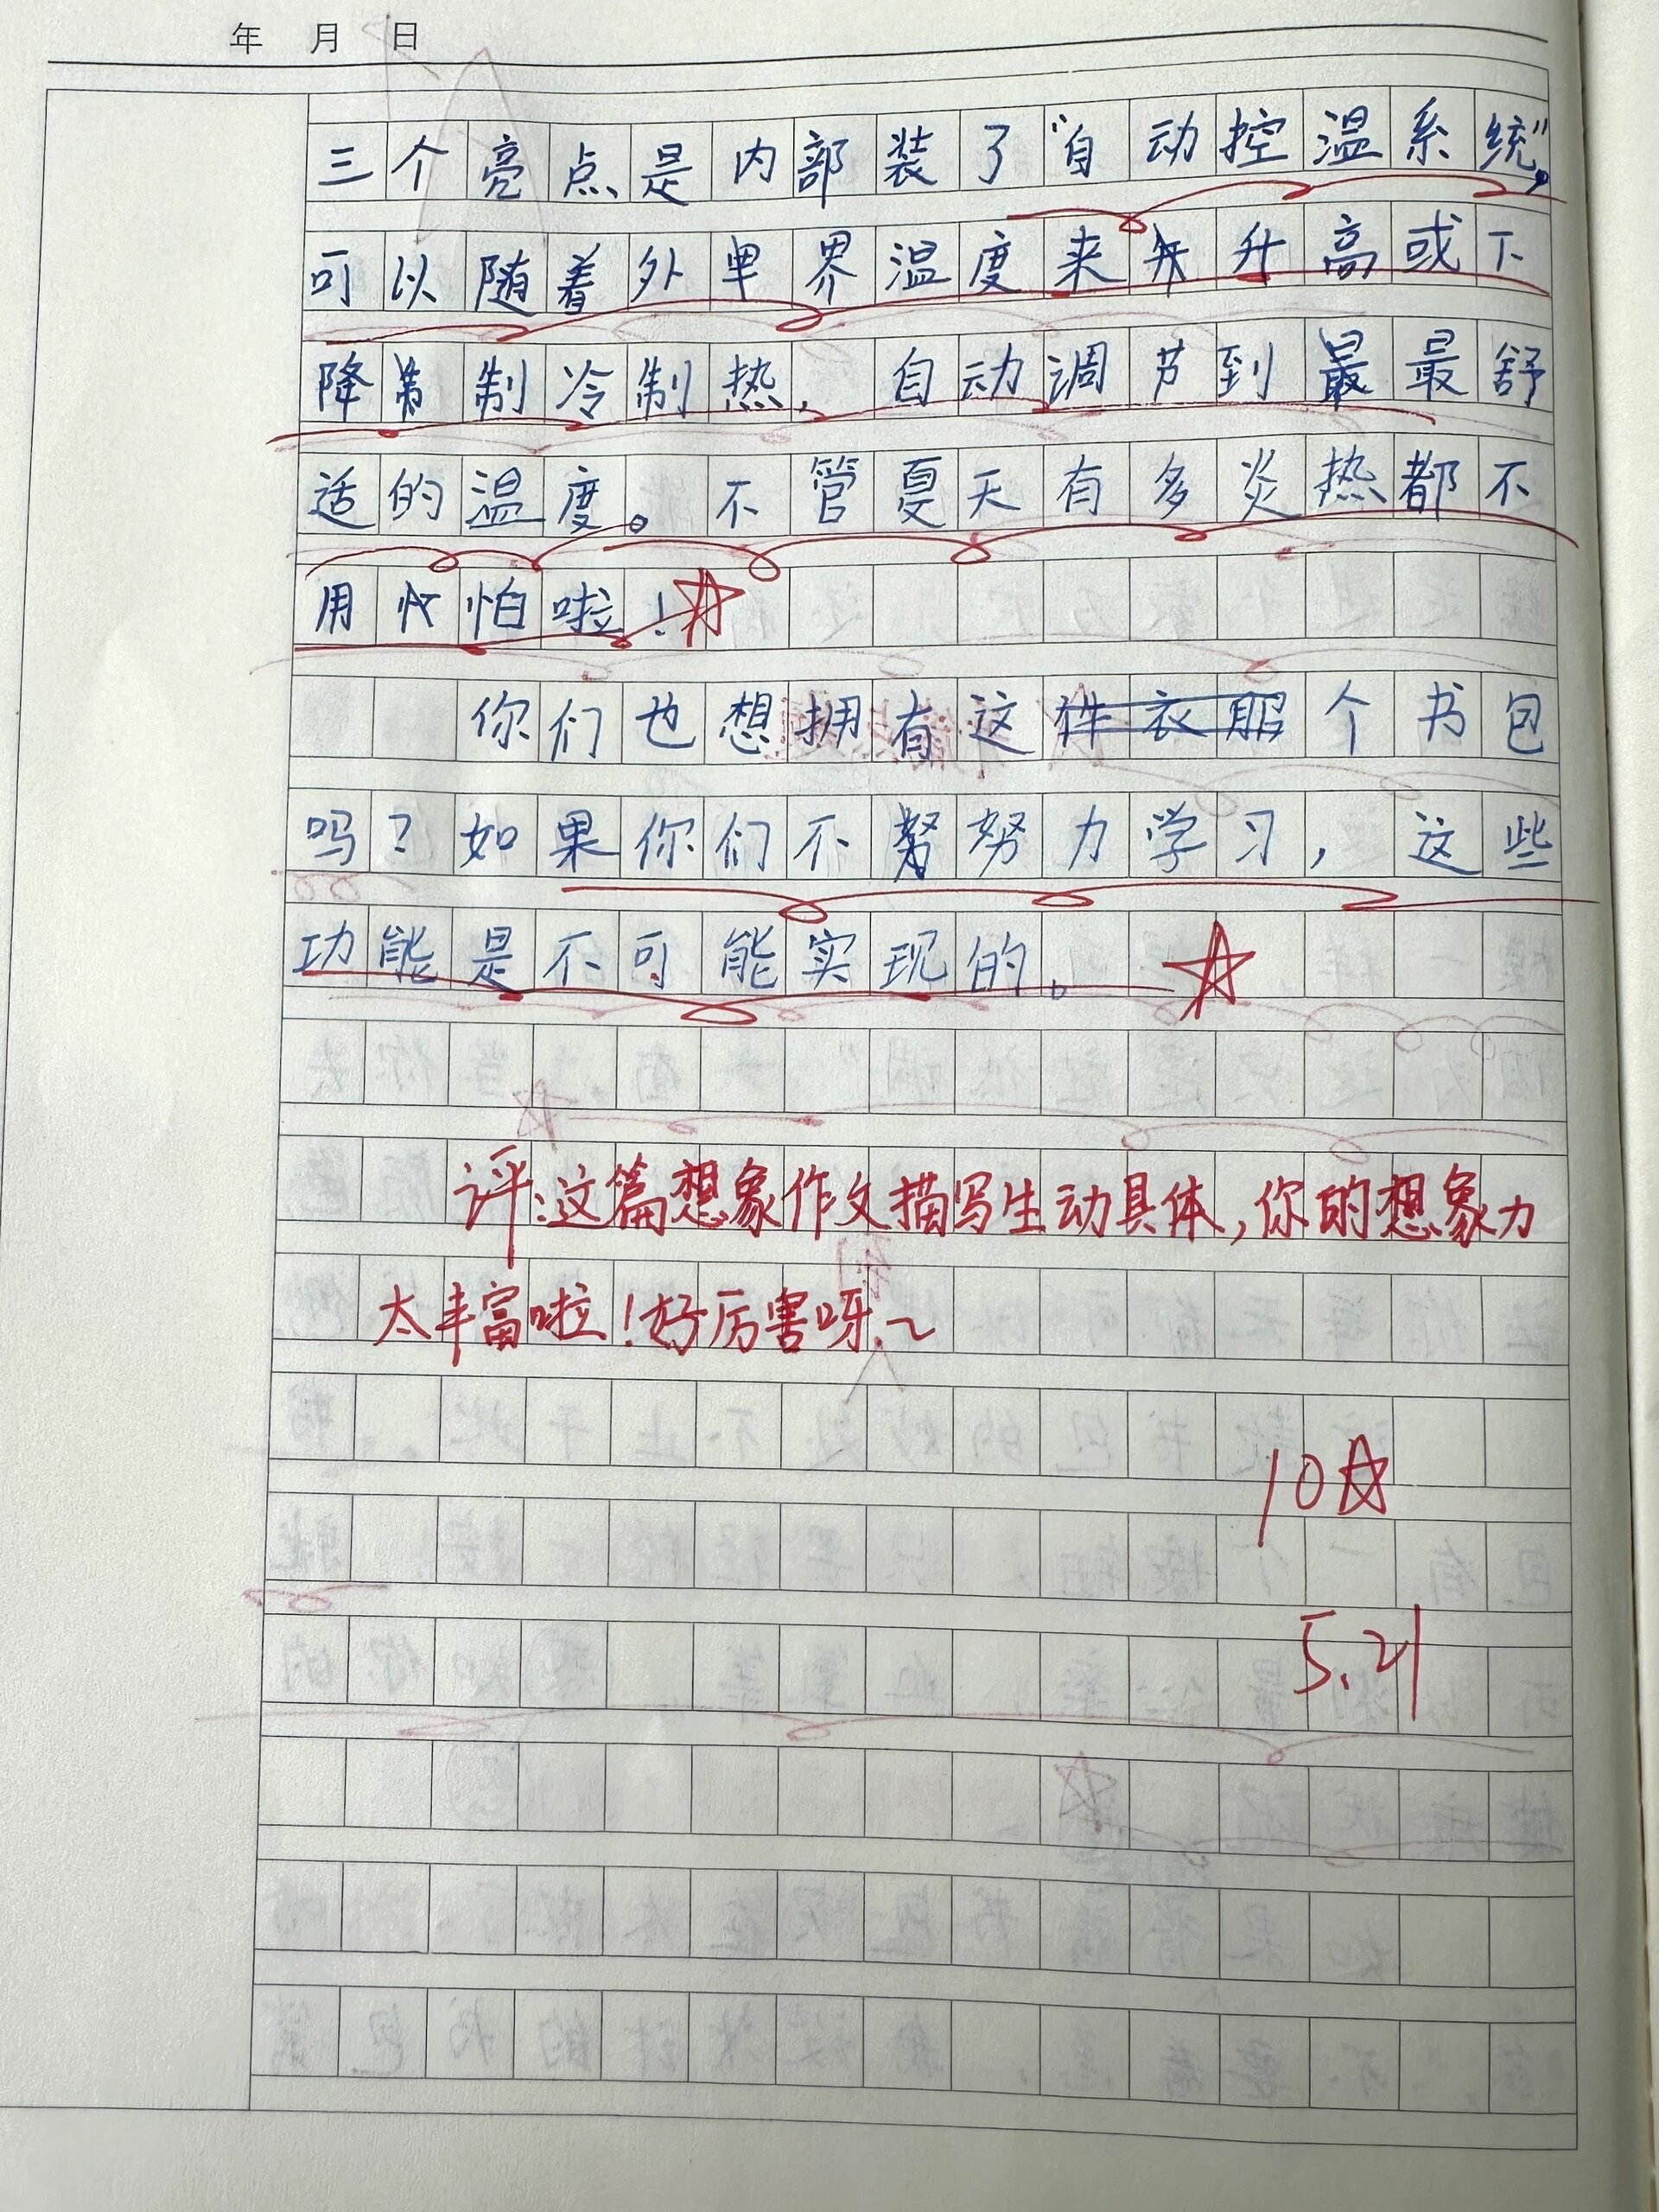 年 月 日
三个亮点是内部装了“自动控温系统”。
可以随着外界温度来升高或下
降制冷制热，自动调节到最最舒
适的温度。不管夏天有多炎热都不
用怕啦！
你们也想拥有这件衣服个书包
吗？如果你们不努力学习，这些
功能是不可能实现的。
评：这篇想象作文描写生动具体，你的想象力
太丰富啦！好厉害呀~
10☆
5.21